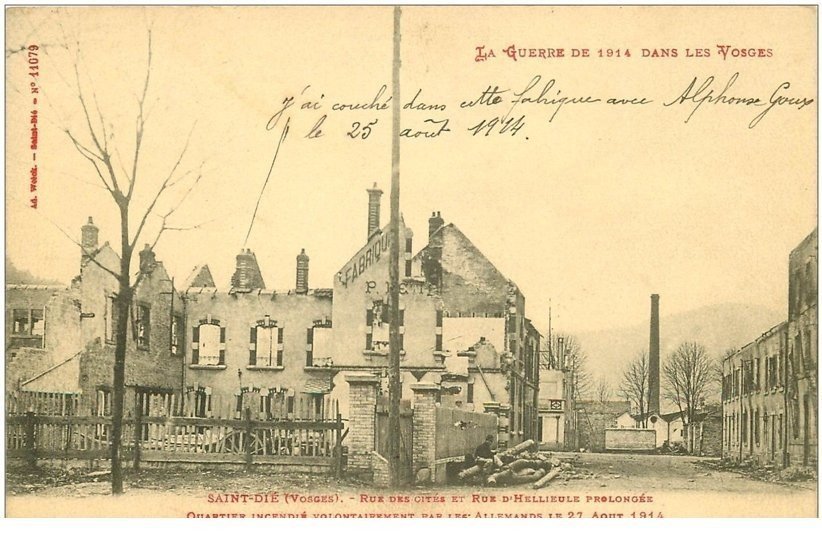 LA GUERRE DE 1914 DANS LES VOSGES
Ad. Weick. — Saint-Dié — N° 11079
j'ai couché dans cette fabrique avec Alphonse Goux
le 25 août 1914.
FABRIQUE
SAINT-DIÉ (VOSGES). - RUE DES CITÉS ET RUE D'HELLIEULE PROLONGÉE
QUARTIER INCENDIÉ VOLONTAIREMENT PAR LES ALLEMANDS LE 27 AOUT 1914